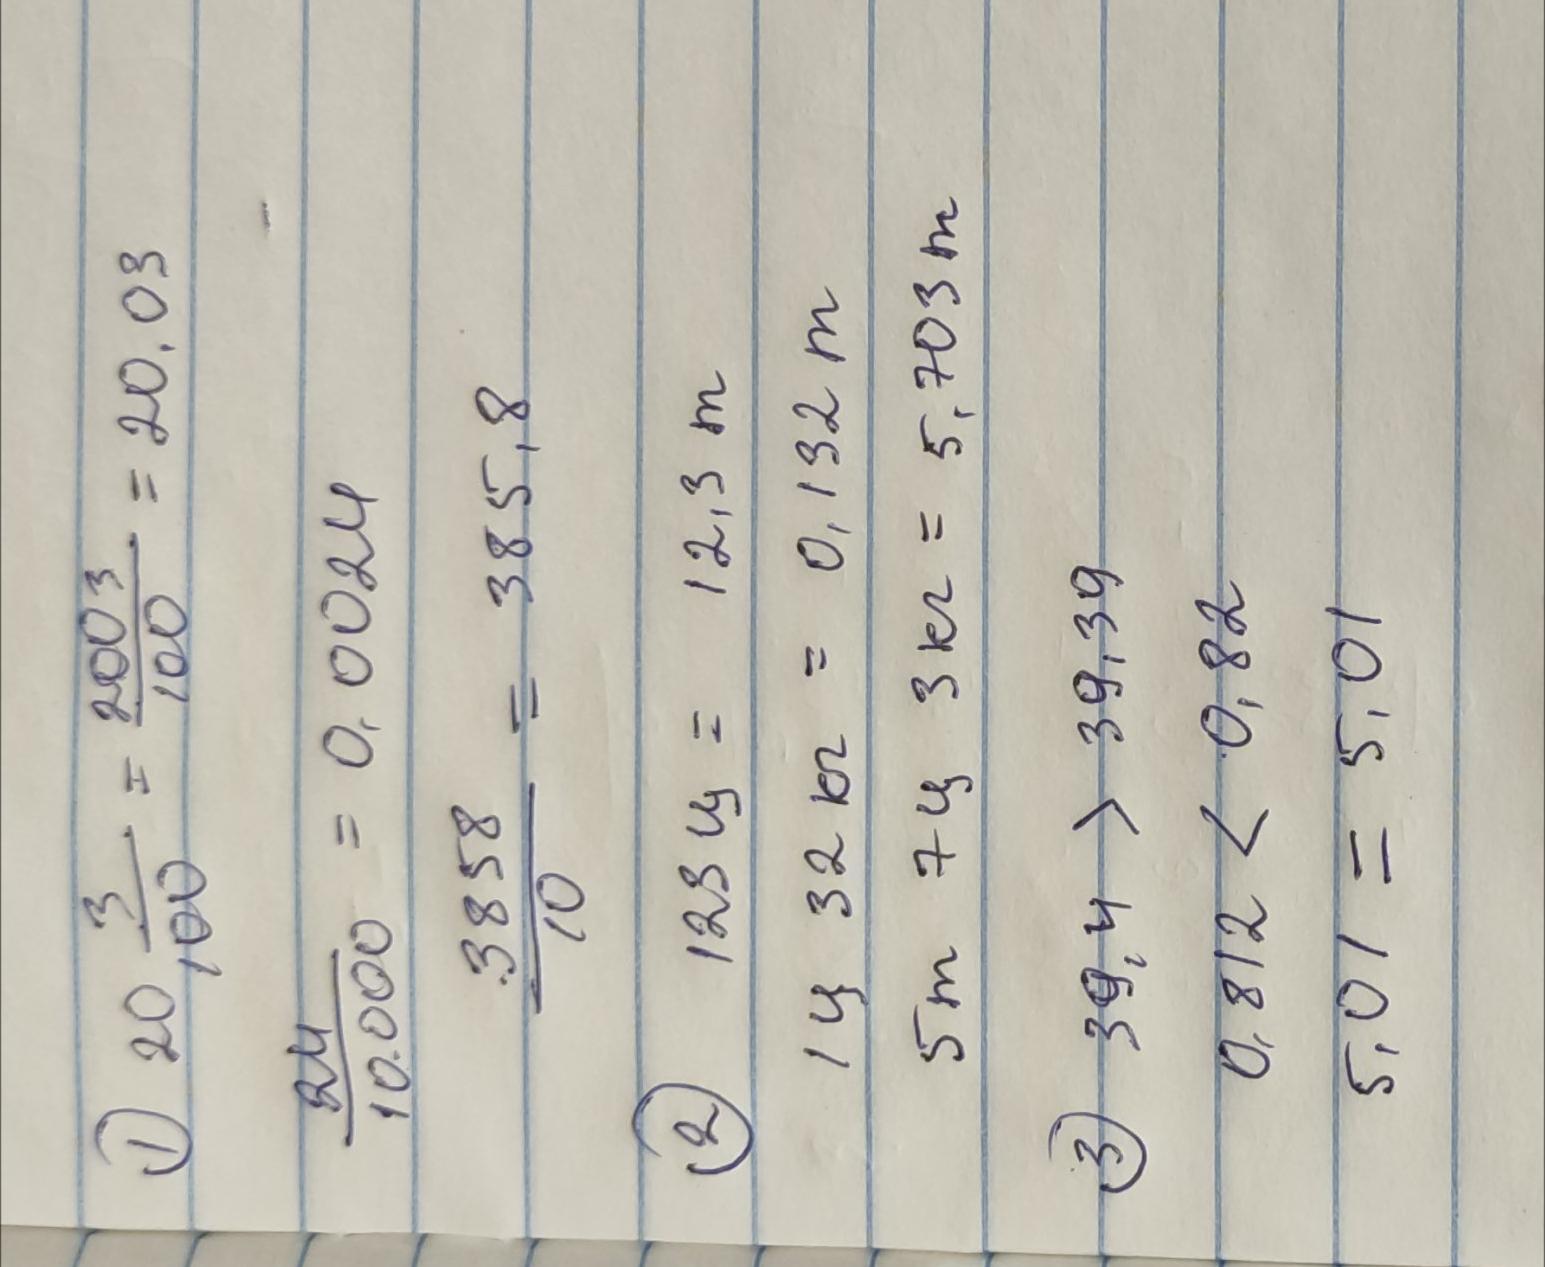 ① 20 3/100 = 2003/100 = 20,03
24/10.000 = 0,0024
3858/10 = 385,8
② 123 ц = 12,3 т
1ц 32 кг = 0,132 т
5т 7ц 3кг = 5,703т
③ 39,4 > 39,39
0,812 < 0,82
5,01 = 5,01